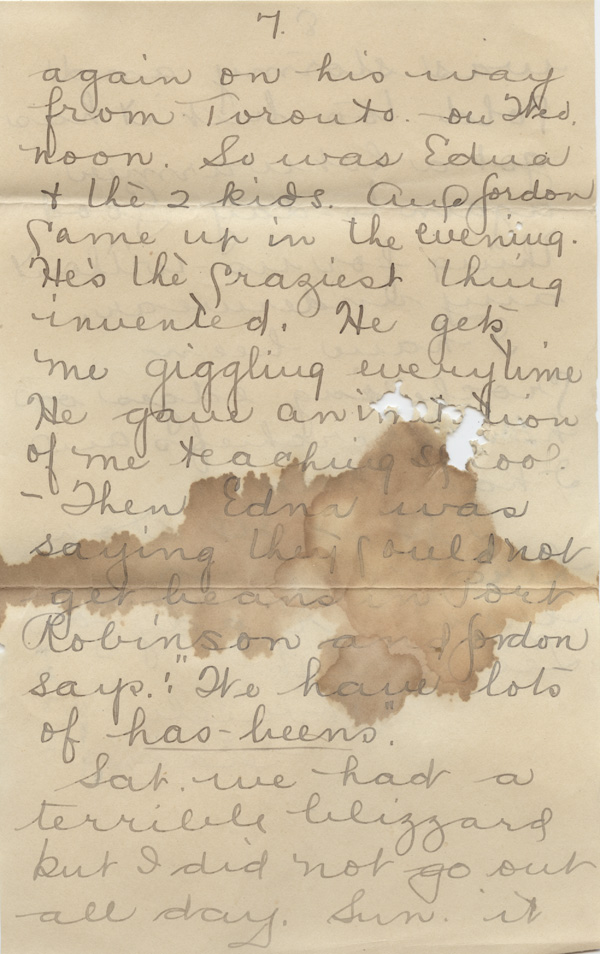 7.
again on his way
from Toronto. on Wed.
noon. So was Edna
& the 2 kids. And Gordon
came up in the evening.
He's the craziest thing
invented. He gets
me giggling everytime
He gave an imitation
of me teaching school.
- Then Edna was
saying they could not
get beans in Port
Robinson and Gordon
says. "We have lots
of has-beens".
Sat. we had a
terrible blizzard
but I did not go out
all day. Sun. it